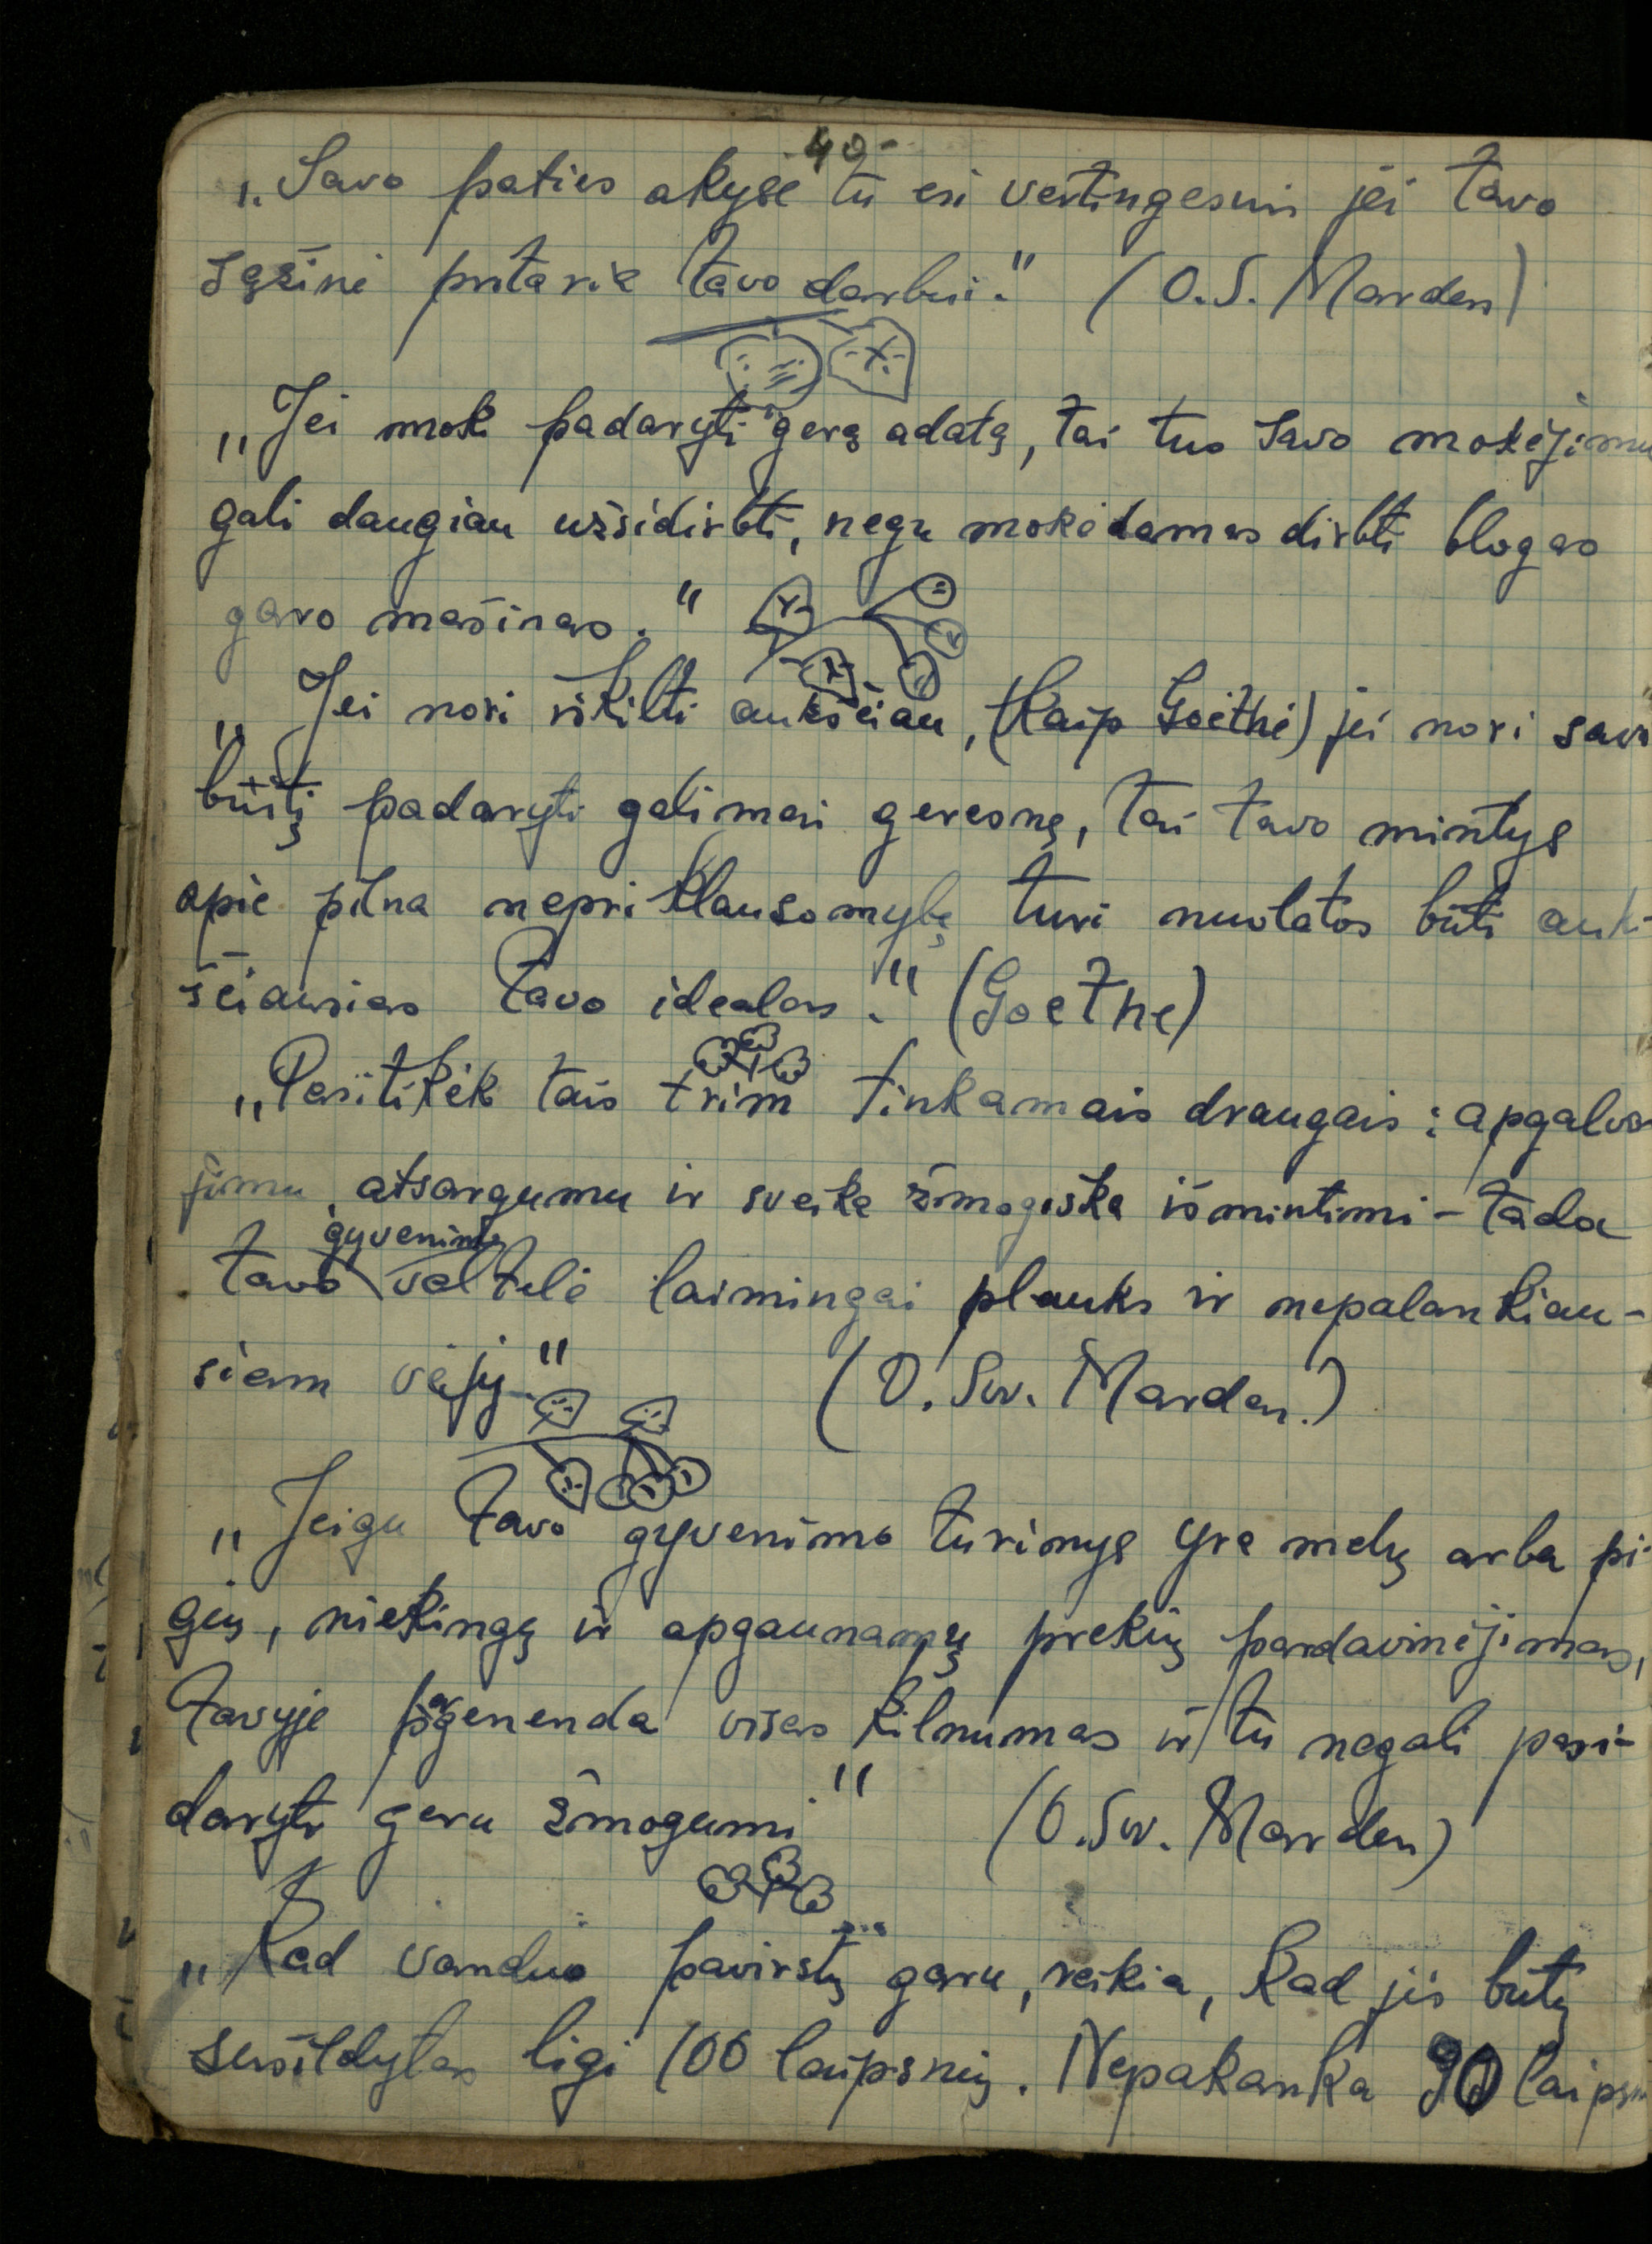 40-
„Savo paties akyse tu esi vertingesnis jei tavo
sąžinė pritaria tavo darbui." (O.S. Marden)
„Jei moki padaryti gerą adatą, tai tuo savo mokėjimu
gali daugiau užsidirbti, negu mokėdamas dirbti blogas
garo mašinas."
„Jei nori iškilti aukščiau, (Kaip Goethė) jei nori savo
būitį padaryti galimai geresnę, tai tavo mintys
apie pilną nepriklausomybę turi nuolatos būti auk-
ščiausias tavo idealas." (Goethe)
„Pasitikėk tais trim tinkamais draugais: apgalvo-
jimu, atsargumu ir sveika žmogiška išmintimi - tada
gyvenimo
tavo valtelė laimingai plauks ir nepalankiau-
siam vėjy" (O. Sw. Marden.)
„Jeigu tavo gyvenimo turinys yra melų arba pi-
gių, niekingų ir apgaunamų prekių pardavinėjimas,
tavyje pagenenda visas kilnumas ir tu negali pasi-
daryti geru žmogumi" (O. Sw. Marden)
„Kad vanduo pavirstų garu, reikia, kad jis būtų
sušildytas ligi 100 laipsnių. Nepakanka 90 laipsn